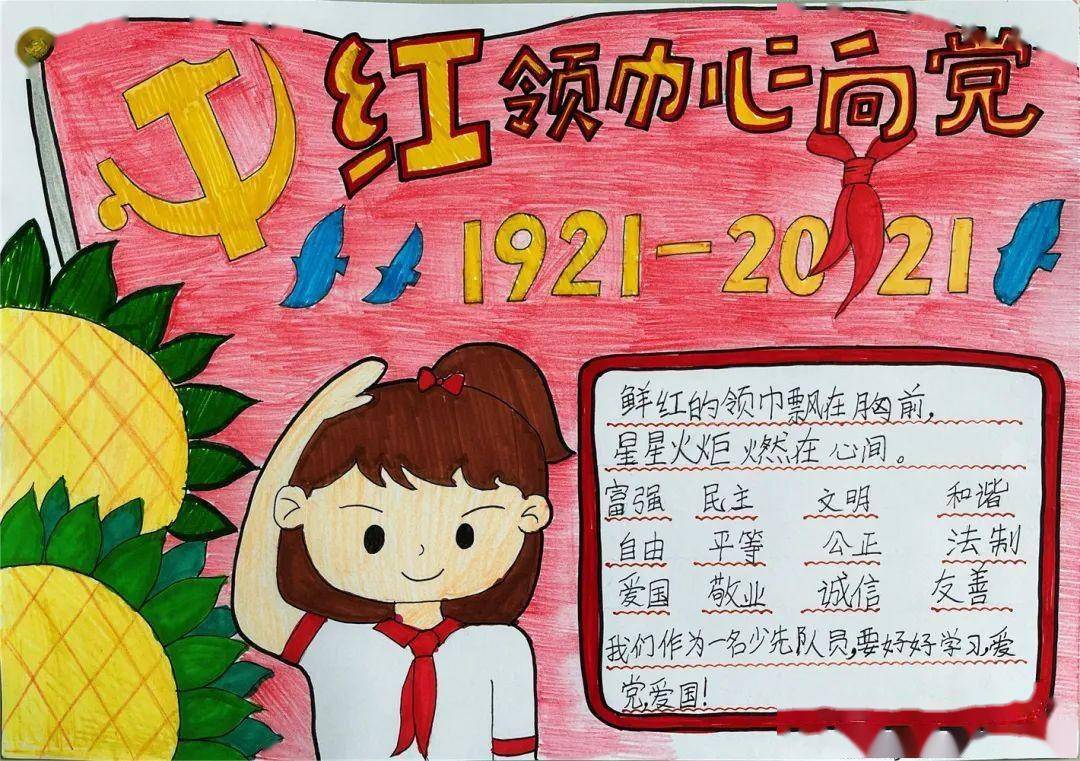 红领巾心向党
1921-2021
鲜红的领巾飘在胸前,
星星火炬燃在心间。
富强 民主 文明 和谐
自由 平等 公正 法制
爱国 敬业 诚信 友善
我们作为一名少先队员,要好好学习,爱
党,爱国!